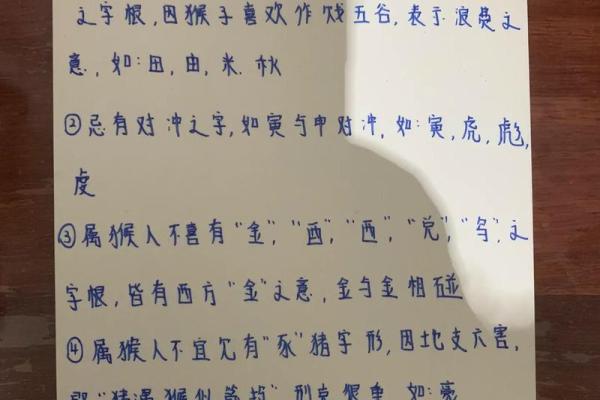 之字根,因猴子喜欢作戏五谷,表示浪费之
意,如:田,由,米.秋
②忌有对冲之字,如寅与申对冲,如:寅,虎,彪,
虔
③属猴人不喜有“金”,“酉”,“西”,“兑”,“刍”,之
字根,皆有西方“金”之意,金与金相碰
④属猴人不宜见有“豕”猪字形,因地支六害,
即“猪遇猴似箭投”刑克很重 如:豪